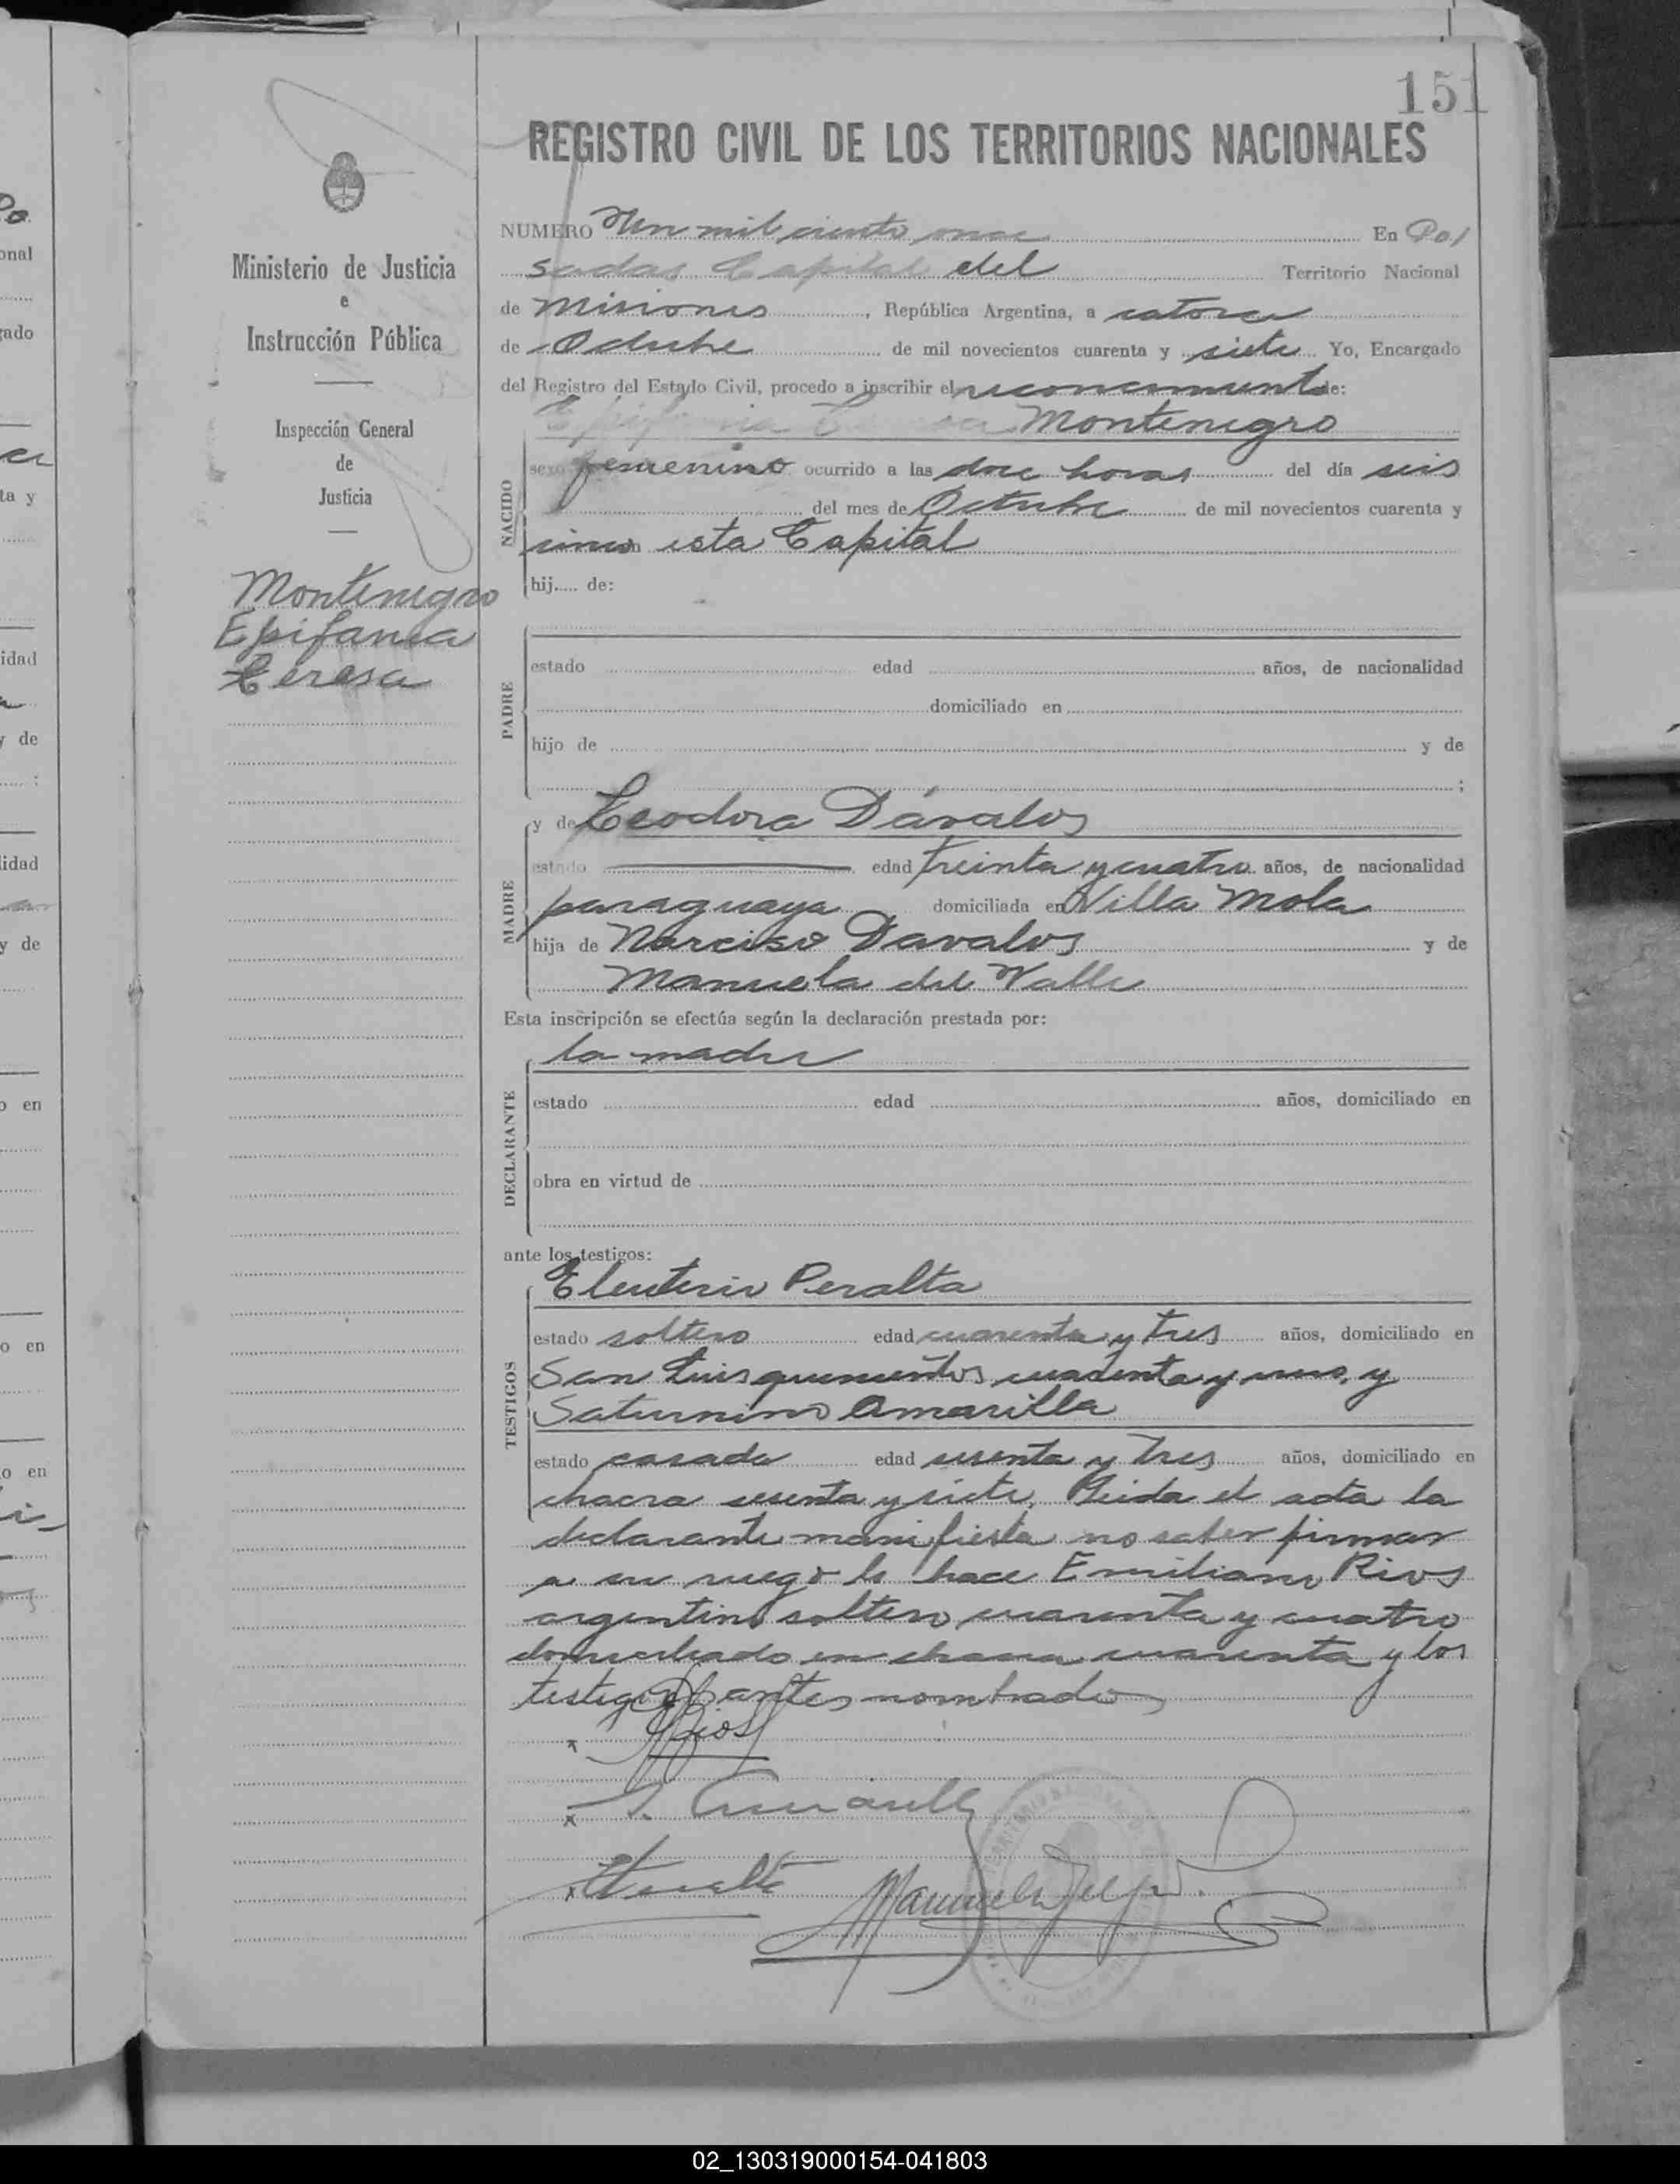 151
REGISTRO CIVIL DE LOS TERRITORIOS NACIONALES
Ministerio de Justicia
e
Instrucción Pública
Inspección General
de
Justicia
Montenegro
Epifania
Teresa
NUMERO Un mil ciento once En Po/
sadas Capital del Territorio Nacional
de Misiones, República Argentina, a catorce
de Octubre de mil novecientos cuarenta y siete Yo, Encargado
del Registro del Estado Civil, procedo a inscribir el reconocimiento de:
Epifania Teresa Montenegro
NACIDO
sexo femenino ocurrido a las doce horas del día seis
del mes de Octubre de mil novecientos cuarenta y
cinco en esta Capital
hij.... de:
PADRE
estado edad años, de nacionalidad
domiciliado en
hijo de y de
;
MADRE
y de Teodora Dávalos
estado edad treinta y cuatro años, de nacionalidad
paraguaya domiciliada en Villa Mola
hija de Narciso Davalos y de
Manuela del Valle
Esta inscripción se efectúa según la declaración prestada por:
la madre
DECLARANTE
estado edad años, domiciliado en
obra en virtud de
ante los testigos:
Eleuterio Peralta
TESTIGOS
estado soltero edad cuarenta y tres años, domiciliado en
San Luis quinientos cuarenta y uno, y
Saturnino Amarilla
estado casado edad sesenta y tres años, domiciliado en
chacra sesenta y siete. Leida el acta la
declarante manifiesta no saber firmar
a su ruego lo hace Emiliano Rios
argentino soltero cuarenta y cuatro
domiciliado en chacra cuarenta y los
testigos antes nombrados
Rios
S. Amarilla
Peralta
02_130319000154-041803